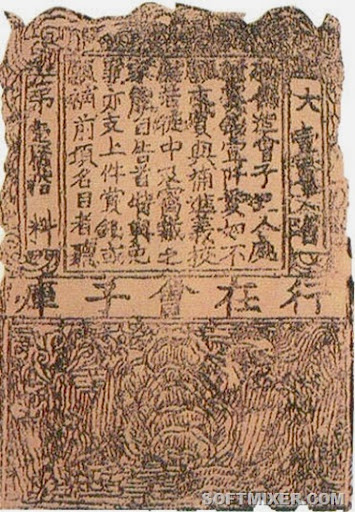 大壹貫文省
敕偽造會子犯人處
斬賞錢壹阡貫如不
願支賞與補進義校
尉若徒中及窩藏之
家能自告首特與免
罪亦支上件賞錢或
願補前項名目者聽
第料
行在會子庫
SOFTMIXER.COM